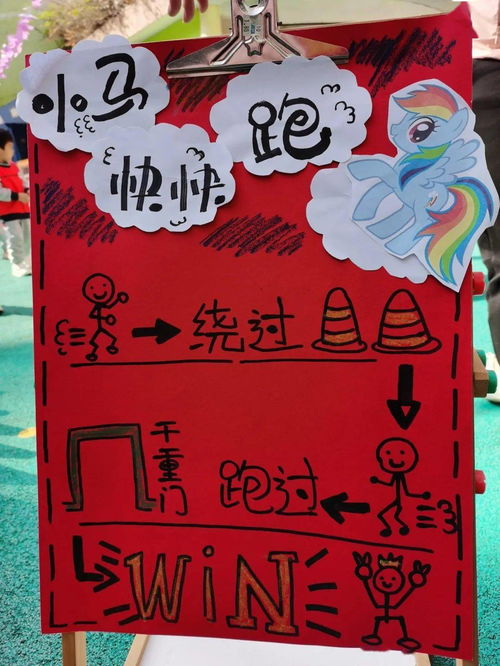 小马
快快
跑
绕过
千重门
跑过
WiN